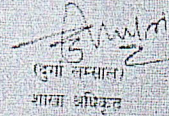 (दुर्गा लम्साल)
शाखा अधिकृत